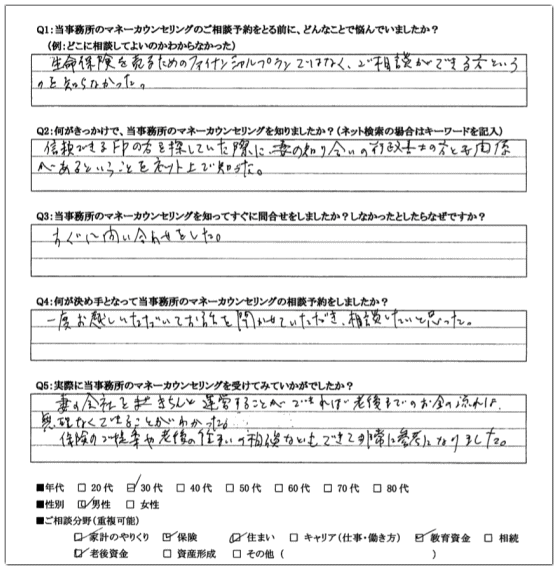 Q1:当事務所のマネーカウンセリングのご相談予約をとる前に、どんなことで悩んでいましたか?
(例:どこに相談してよいのかわからなかった)
生命保険を売るためのファイナンシャルプランではなく、ご相談ができる方という
のを知らなかった。
Q2:何がきっかけで、当事務所のマネーカウンセリングを知りましたか?(ネット検索の場合はキーワードを記入)
信頼できるFPの方を探していた際に、妻の知り合いの行政書士の方とも関係
があるということをネット上で知った。
Q3:当事務所のマネーカウンセリングを知ってすぐに問合せをしましたか?しなかったとしたらなぜですか?
すぐに問い合わせをした。
Q4:何が決め手となって当事務所のマネーカウンセリングの相談予約をしましたか?
一度お越しいただいてお話を聞かせていただき、相談したいと思った。
Q5:実際に当事務所のマネーカウンセリングを受けてみていかがでしたか?
妻の会社をきちんと運営することができれば老後までのお金の流れは、
無理なくできることがわかった。
保険のご提案や老後の住まいの相談などもできて非常に参考になりました。
■年代 □20代 □30代 □40代 □50代 □60代 □70代 □80代
■性別 □男性 □女性
■ご相談分野(重複可能)
□家計のやりくり □保険 □住まい □キャリア(仕事・働き方) □教育資金 □相続
□老後資金 □資産形成 □その他( )